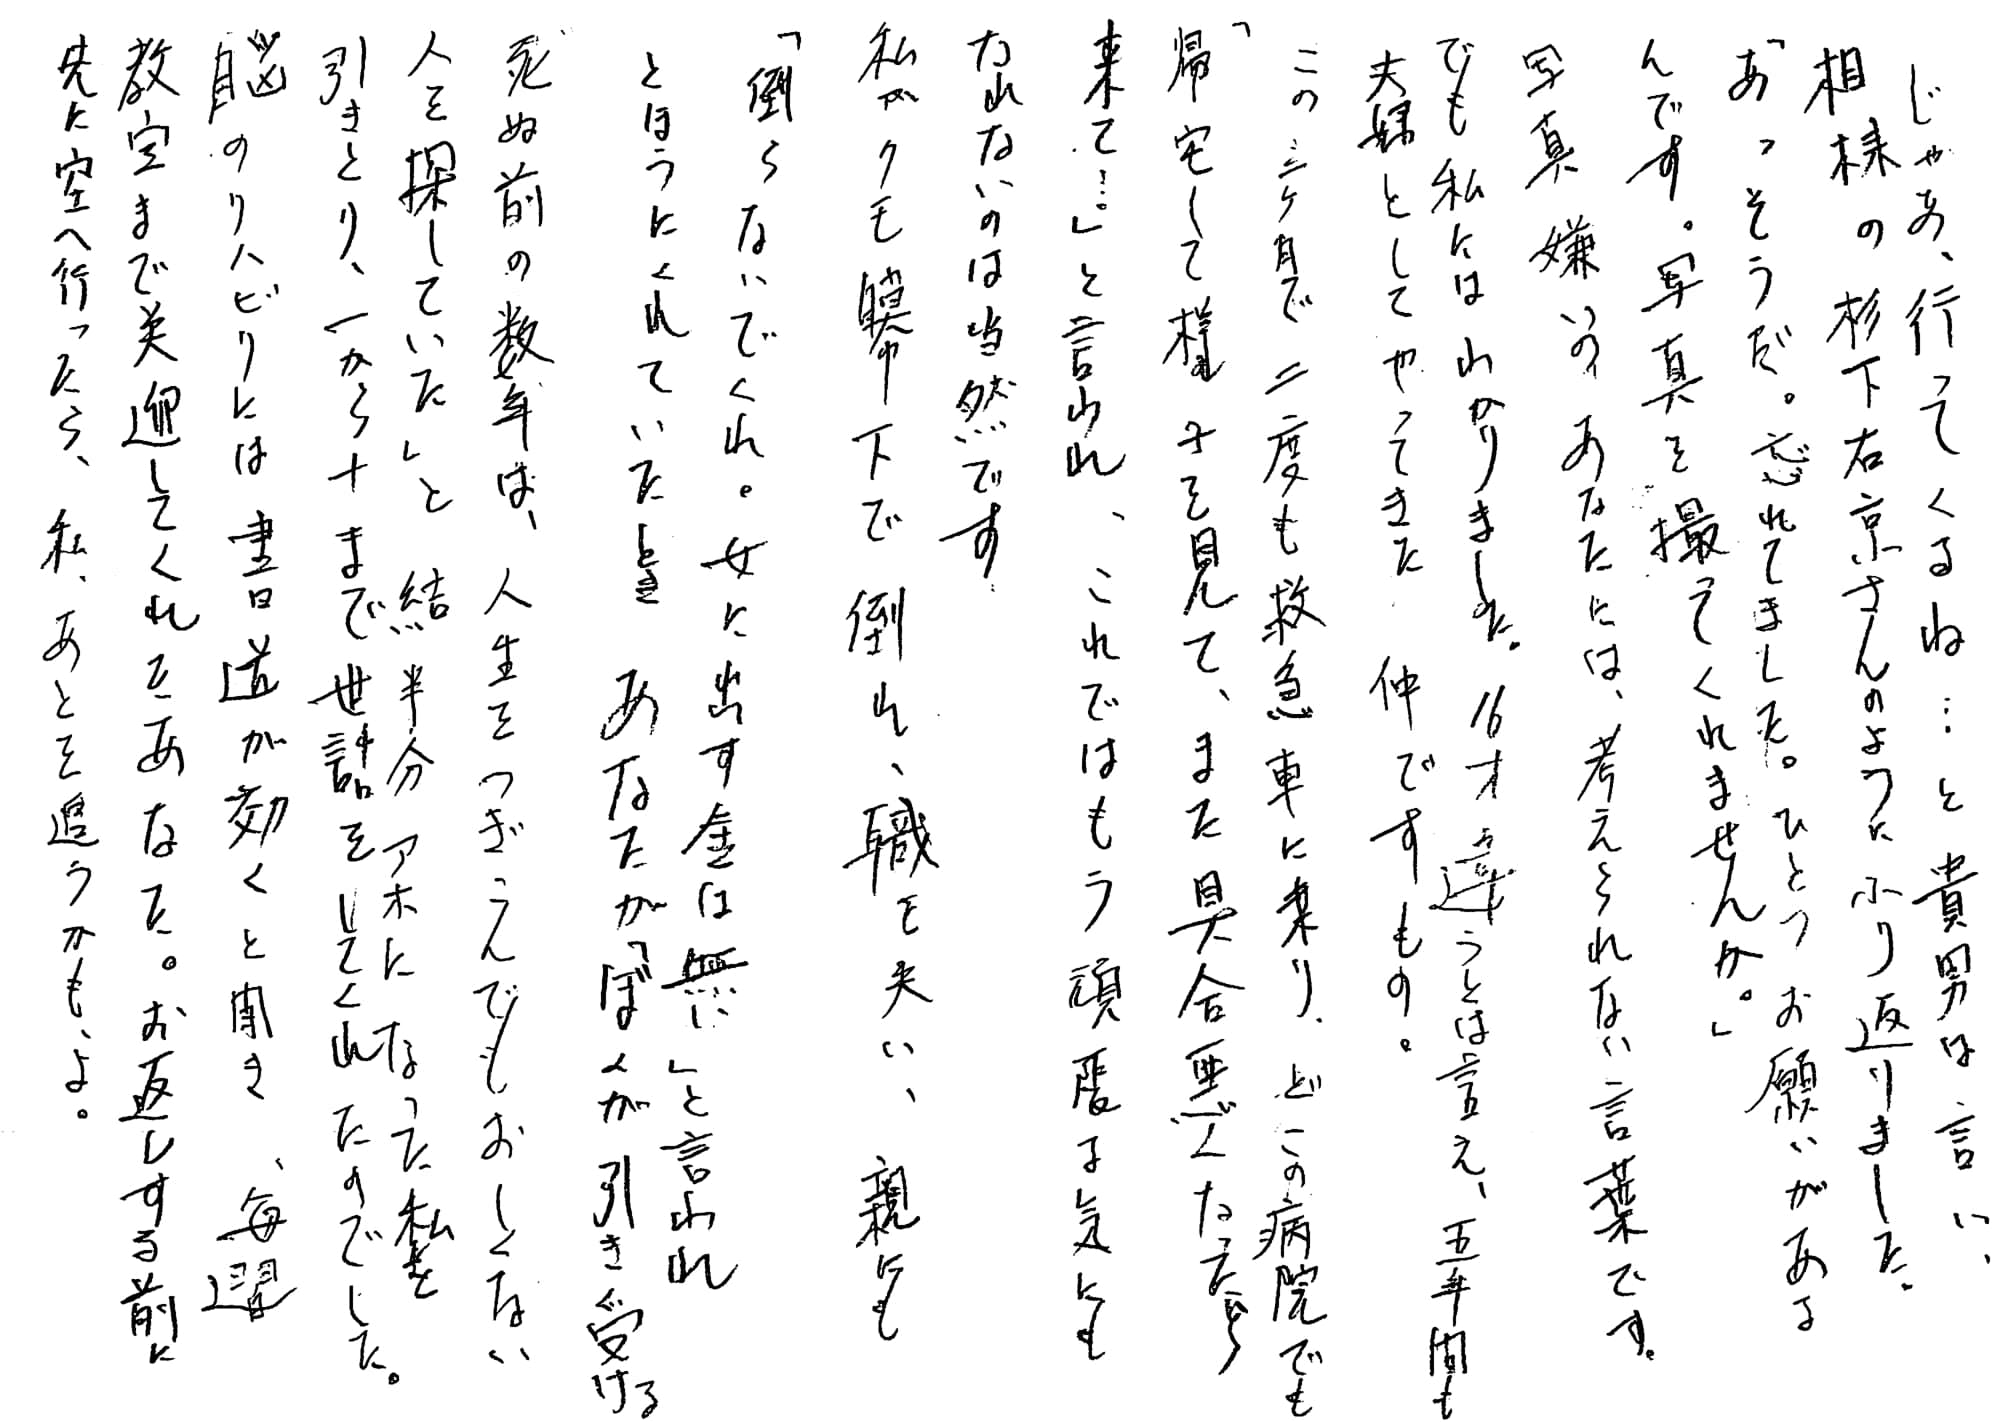 じゃあ、行ってくるね…と貴男は言い、
相棒の杉下右京さんのようにふり返りました。
「あっそうだ。忘れてました。ひとつお願いがある
んです。写真を撮ってくれませんか。」
写真嫌いのあなたには、考えられない言葉です。
でも私にはわかりました。16才違うとは言え、五年間も
夫婦としてやってきた仲ですもの。
この三ヶ月で二度も救急車に乗り、どこの病院でも
「帰宅して様子を見て、また具合悪くなったら
来て…。」と言われ、これではもう頑張る気にも
なれないのは当然です
私がクモ膜下で倒れ、職も失い、親にも
「倒らないでくれ。女に出す金は無い」と言われ
とほうにくれていたとき あなたが「ぼくが引き受ける
死ぬ前の数年は、人生をつぎこんでもおしくない
人を探していた」と 結 半分アホになった私を
引きとり、一から十まで世話をしてくれたのでした。
脳のリハビリには書道が効くと聞き、毎週
教室まで送迎してくれたあなた。お返しする前に
先に空へ行ったら、私、あとを追うかも、よ。